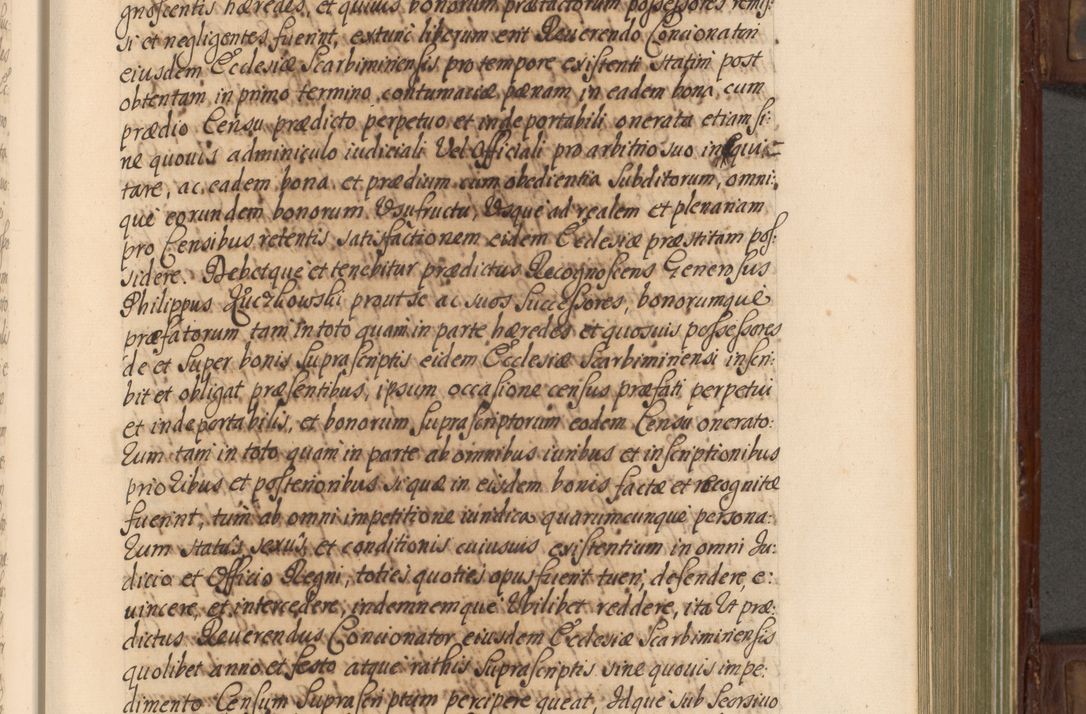 gnoscentis hæredes, et quiuis bonorum præfactorum possessores remis:
si et negligentes fuerint, extunc liberum erit Reuerendo Concionatori
eiusdem Ecclesiæ Scarbiminensis pro tempore existenti statim post
obtentam in primo termino contumaciæ pœnam in eadem bona cum
prædio Censu prædicto perpetuo et indeportabili onerata etiam si:
ne quouis adminiculo iudiciali Vel Officiali pro arbitrio suo inequi=
tare, ac eadem bona et prædium cum obedientia Subditorum, omni:
que eorundem bonorum Vsufructu, Vsque ad realem et plenariam
pro Censibus retentis satisfactionem eidem Ecclesiæ præstitam pos:
sidere. Debetque et tenebitur prædictus Recognoscens Generosus
Philippus prout se ac suos Successores, bonorumque
præfatorum tam in toto quam in parte hæredes et quosuis possessores
de et super bonis suprascriptis eidem Ecclesiæ Scarbiminensi inscri:
bit et obligat præsentibus, ipsum occasione census præfati perpetui
et indeportabilis, et bonorum suprascriptorum eodem Censu onerato:
rum tam in toto quam in parte ab omnibus iuribus et inscriptionibus
prioribus et posterioribus si quæ in eisdem bonis factæ et recognitæ
fuerint, tum ab omni impetitione iuridica quarumcunque persona:
rum status sexus et conditionis cuiusuis existentium in omni Ju:
dicio et Officio Regni, toties quoties opus fuerit tueri, defendere, e:
uincere, et intercedere, indemnemque Vbilibet reddere, ita Vt præ:
dictus Reuerendus Concionator eiusdem Ecclesiæ Scarbiminensis
quolibet anno et festo atque rathis suprascriptis sine quouis impe:
dimento Censum suprascriptum percipere queat, Idque sub Seorsiuo